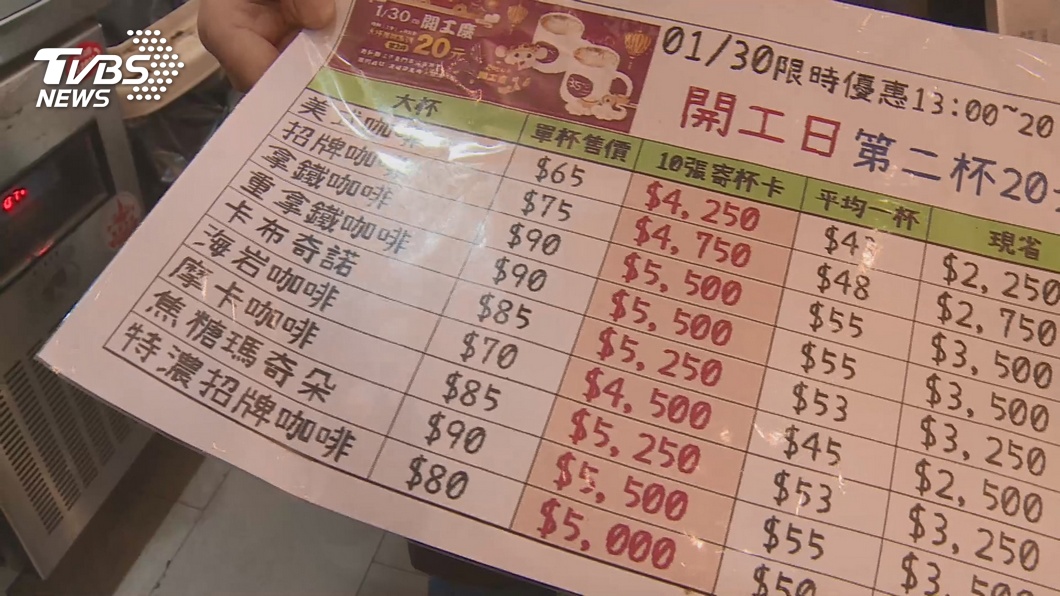 TVBS
NEWS
1/30 開工慶
20元
01/30限時優惠13:00~20
開工日第二杯20
大杯 單杯售價 10張寄杯卡 平均一杯 現省
美式咖啡 $65 $4,250 $43 $2,250
招牌咖啡 $75 $4,750 $48 $2,750
拿鐵咖啡 $90 $5,500 $55 $3,500
重拿鐵咖啡 $90 $5,500 $55 $3,500
卡布奇諾 $85 $5,250 $53 $3,250
海岩咖啡 $70 $4,500 $45 $2,500
摩卡咖啡 $85 $5,250 $53 $3,250
焦糖瑪奇朵 $90 $5,500 $55 $3,500
特濃招牌咖啡 $80 $5,000 $50